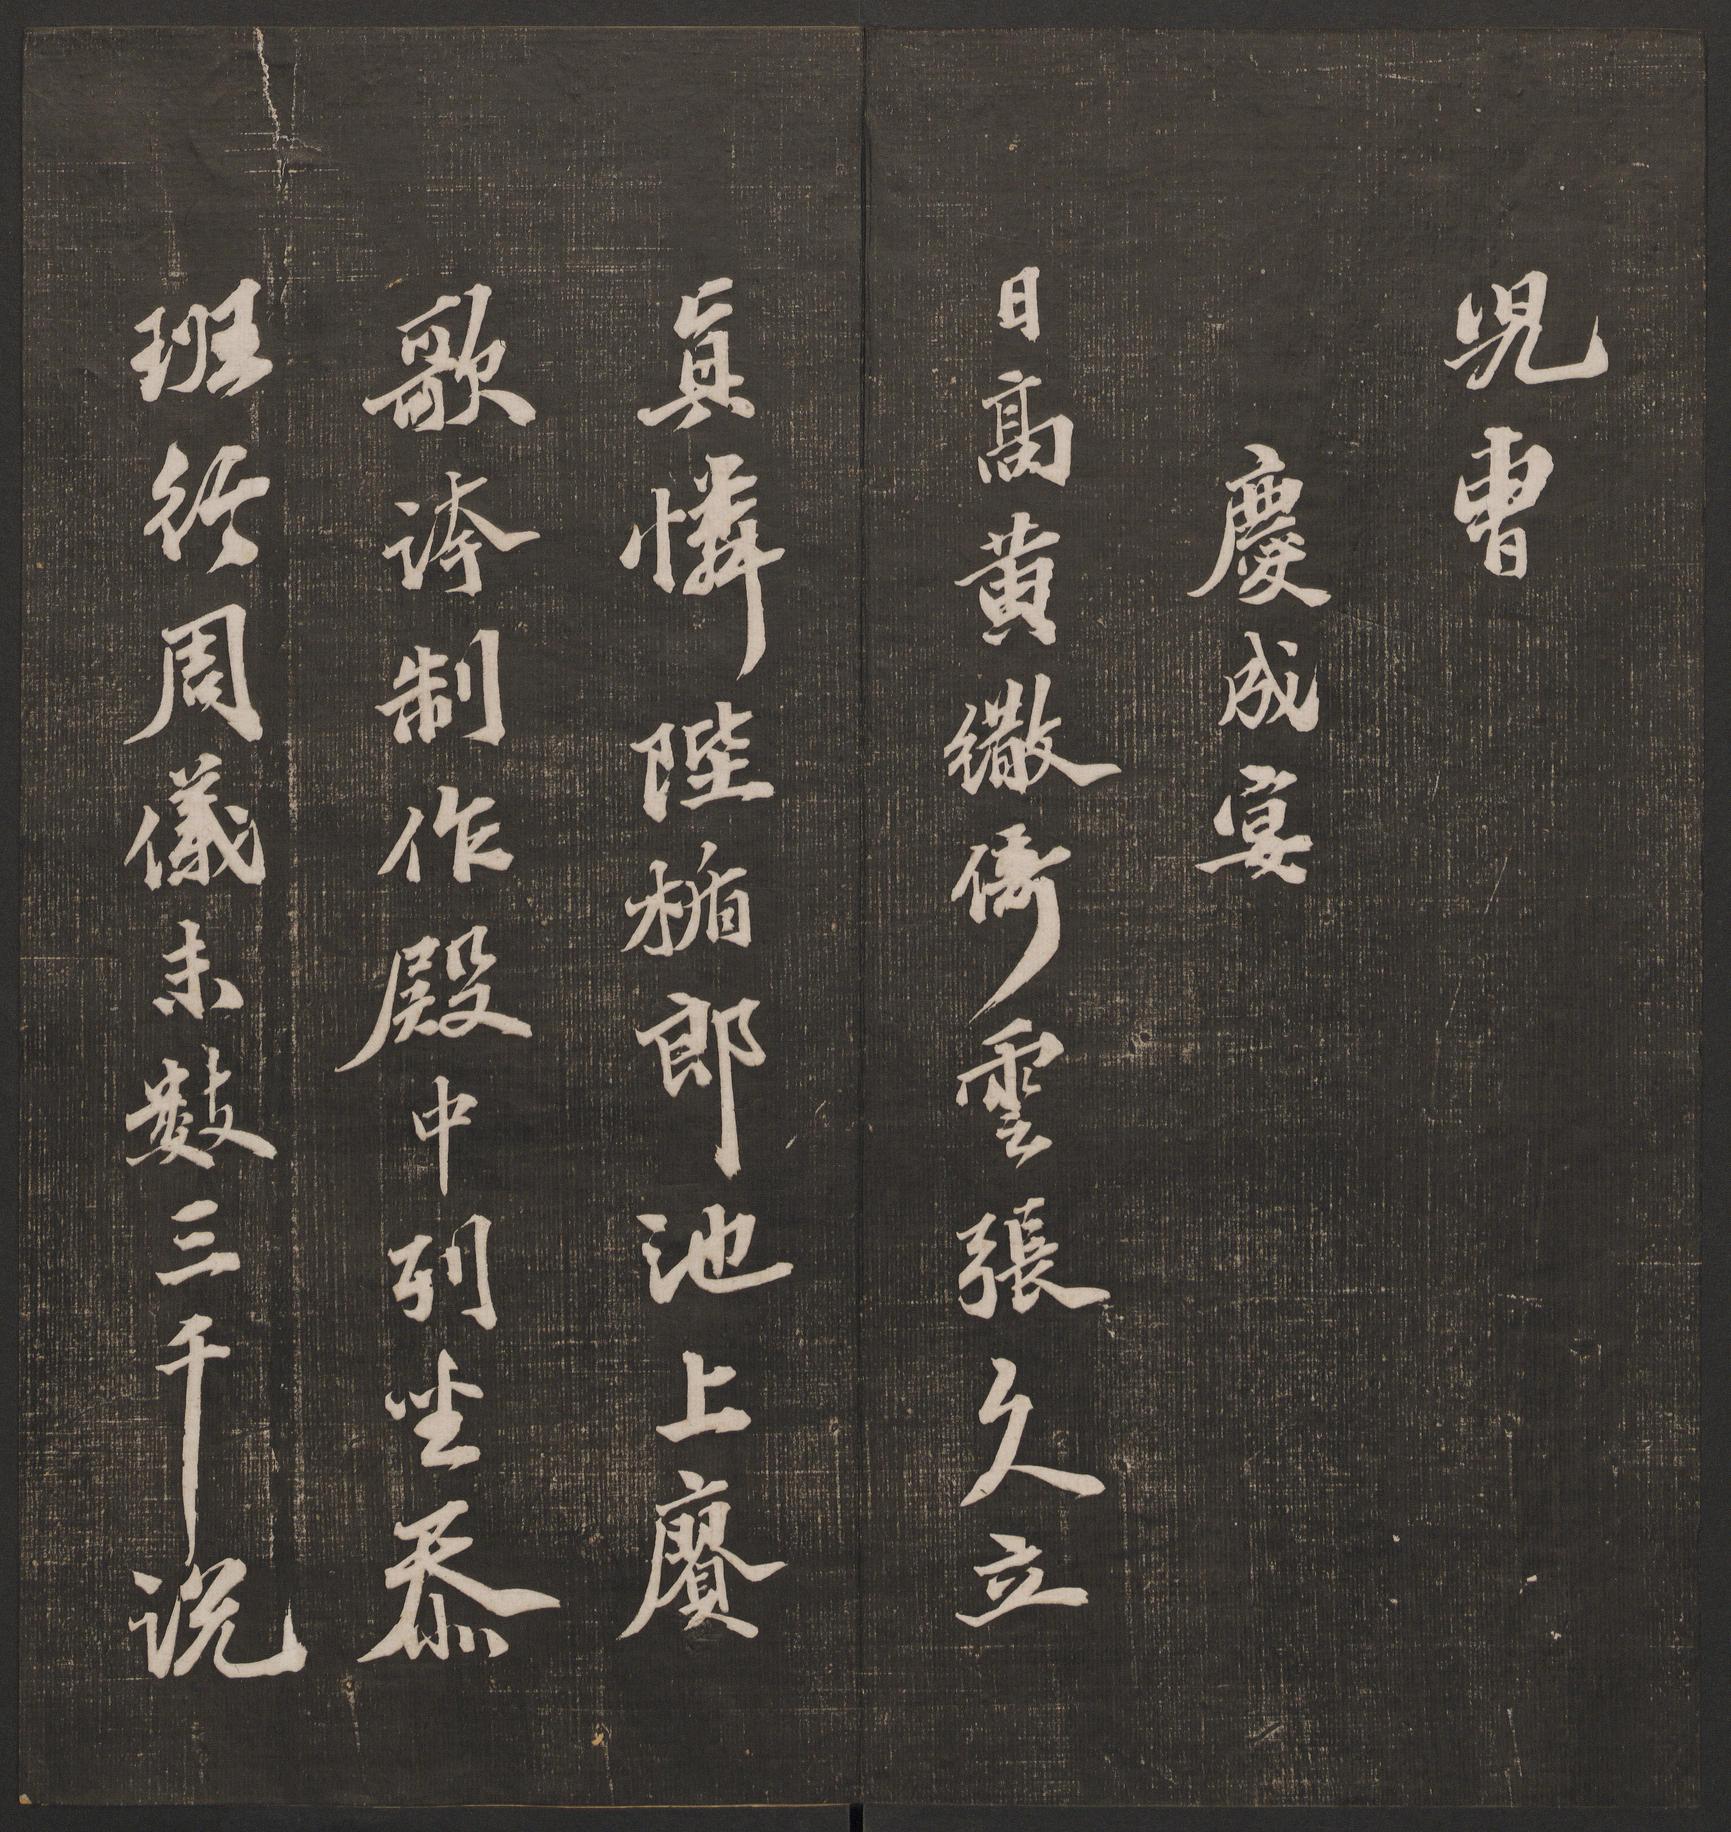 児曹
慶成宴
日高黄繖倚雲張久立
真憐陛楯郎池上賡
歌誇制作殿中列坐忝
班行周儀未數三千説